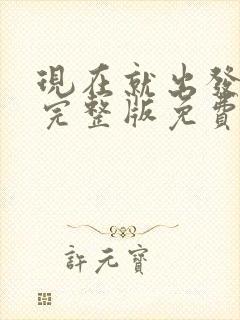 現在就出發
完整版免費
許元寶